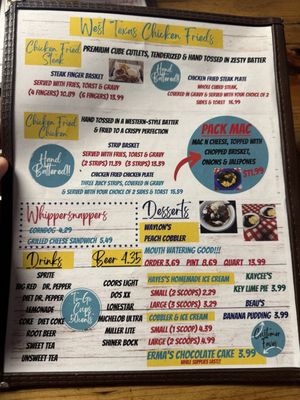 West Texas Chicken Frieds
Chicken Fried
Steak
PREMIUM CUBE CUTLETS, TENDERIZED & HAND TOSSED IN ZESTY BATTER
STEAK FINGER BASKET
SERVED WITH FRIES, TOAST & GRAVY
(4 FINGERS) 10.89 (6 FINGERS) 13.99
Hand
Battered!!
CHICKEN FRIED STEAK PLATE
WHOLE CUBED STEAK,
COVERED IN GRAVY & SERVED WITH YOUR CHOICE OF 2
SIDES & TOAST 16.99
Chicken Fried
Chicken
HAND TOSSED IN A WESTERN-STYLE BATTER
& FRIED TO A CRISPY PERFECTION
Hand
Battered!!
STRIP BASKET
SERVED WITH FRIES, TOAST & GRAVY
(2 STRIPS) 11.79 (3 STRIPS) 13.39
CHICKEN FRIED CHICKEN PLATE
THREE JUICY STRIPS, COVERED IN GRAVY
& SERVED WITH YOUR CHOICE OF 2 SIDES & TOAST 15.39
PACK MAC
MAC N CHEESE, TOPPED WITH
CHOPPED BRISKET,
ONIONS & JALEPONES
$11.99
Whippersnappers
CORNDOG 4.29
GRILLED CHEESE SANDWICH 5.49
Desserts
WAYLON'S
PEACH COBBLER
MOUTH WATERING GOOD!!!
ORDER 3.69 PINT 8.69 QUART 13.99
Drinks
SPRITE
BIG RED DR. PEPPER
DIET DR. PEPPER
LEMONADE
COKE DIET COKE
ROOT BEER
SWEET TEA
UNSWEET TEA
To-Go
Cups
50cents
Beer 4.35
COORS LIGHT
DOS XX
LONESTAR
MICHELOB ULTRA
MILLER LITE
SHINER BOCK
HAYES'S HOMEMADE ICE CREAM
SMALL (2 SCOOPS) 2.29
LARGE (3 SCOOPS) 3.29
COBBLER & ICE CREAM
SMALL (1 SCOOP) 4.39
LARGE (2 SCOOPS) 4.99
ERMA'S CHOCOLATE CAKE 3.99
WHILE SUPPLIES LAST!!
KAYCEE'S
KEY LIME PIE 3.99
BEAU'S
BANANA PUDDING 3.99
Customer
Love